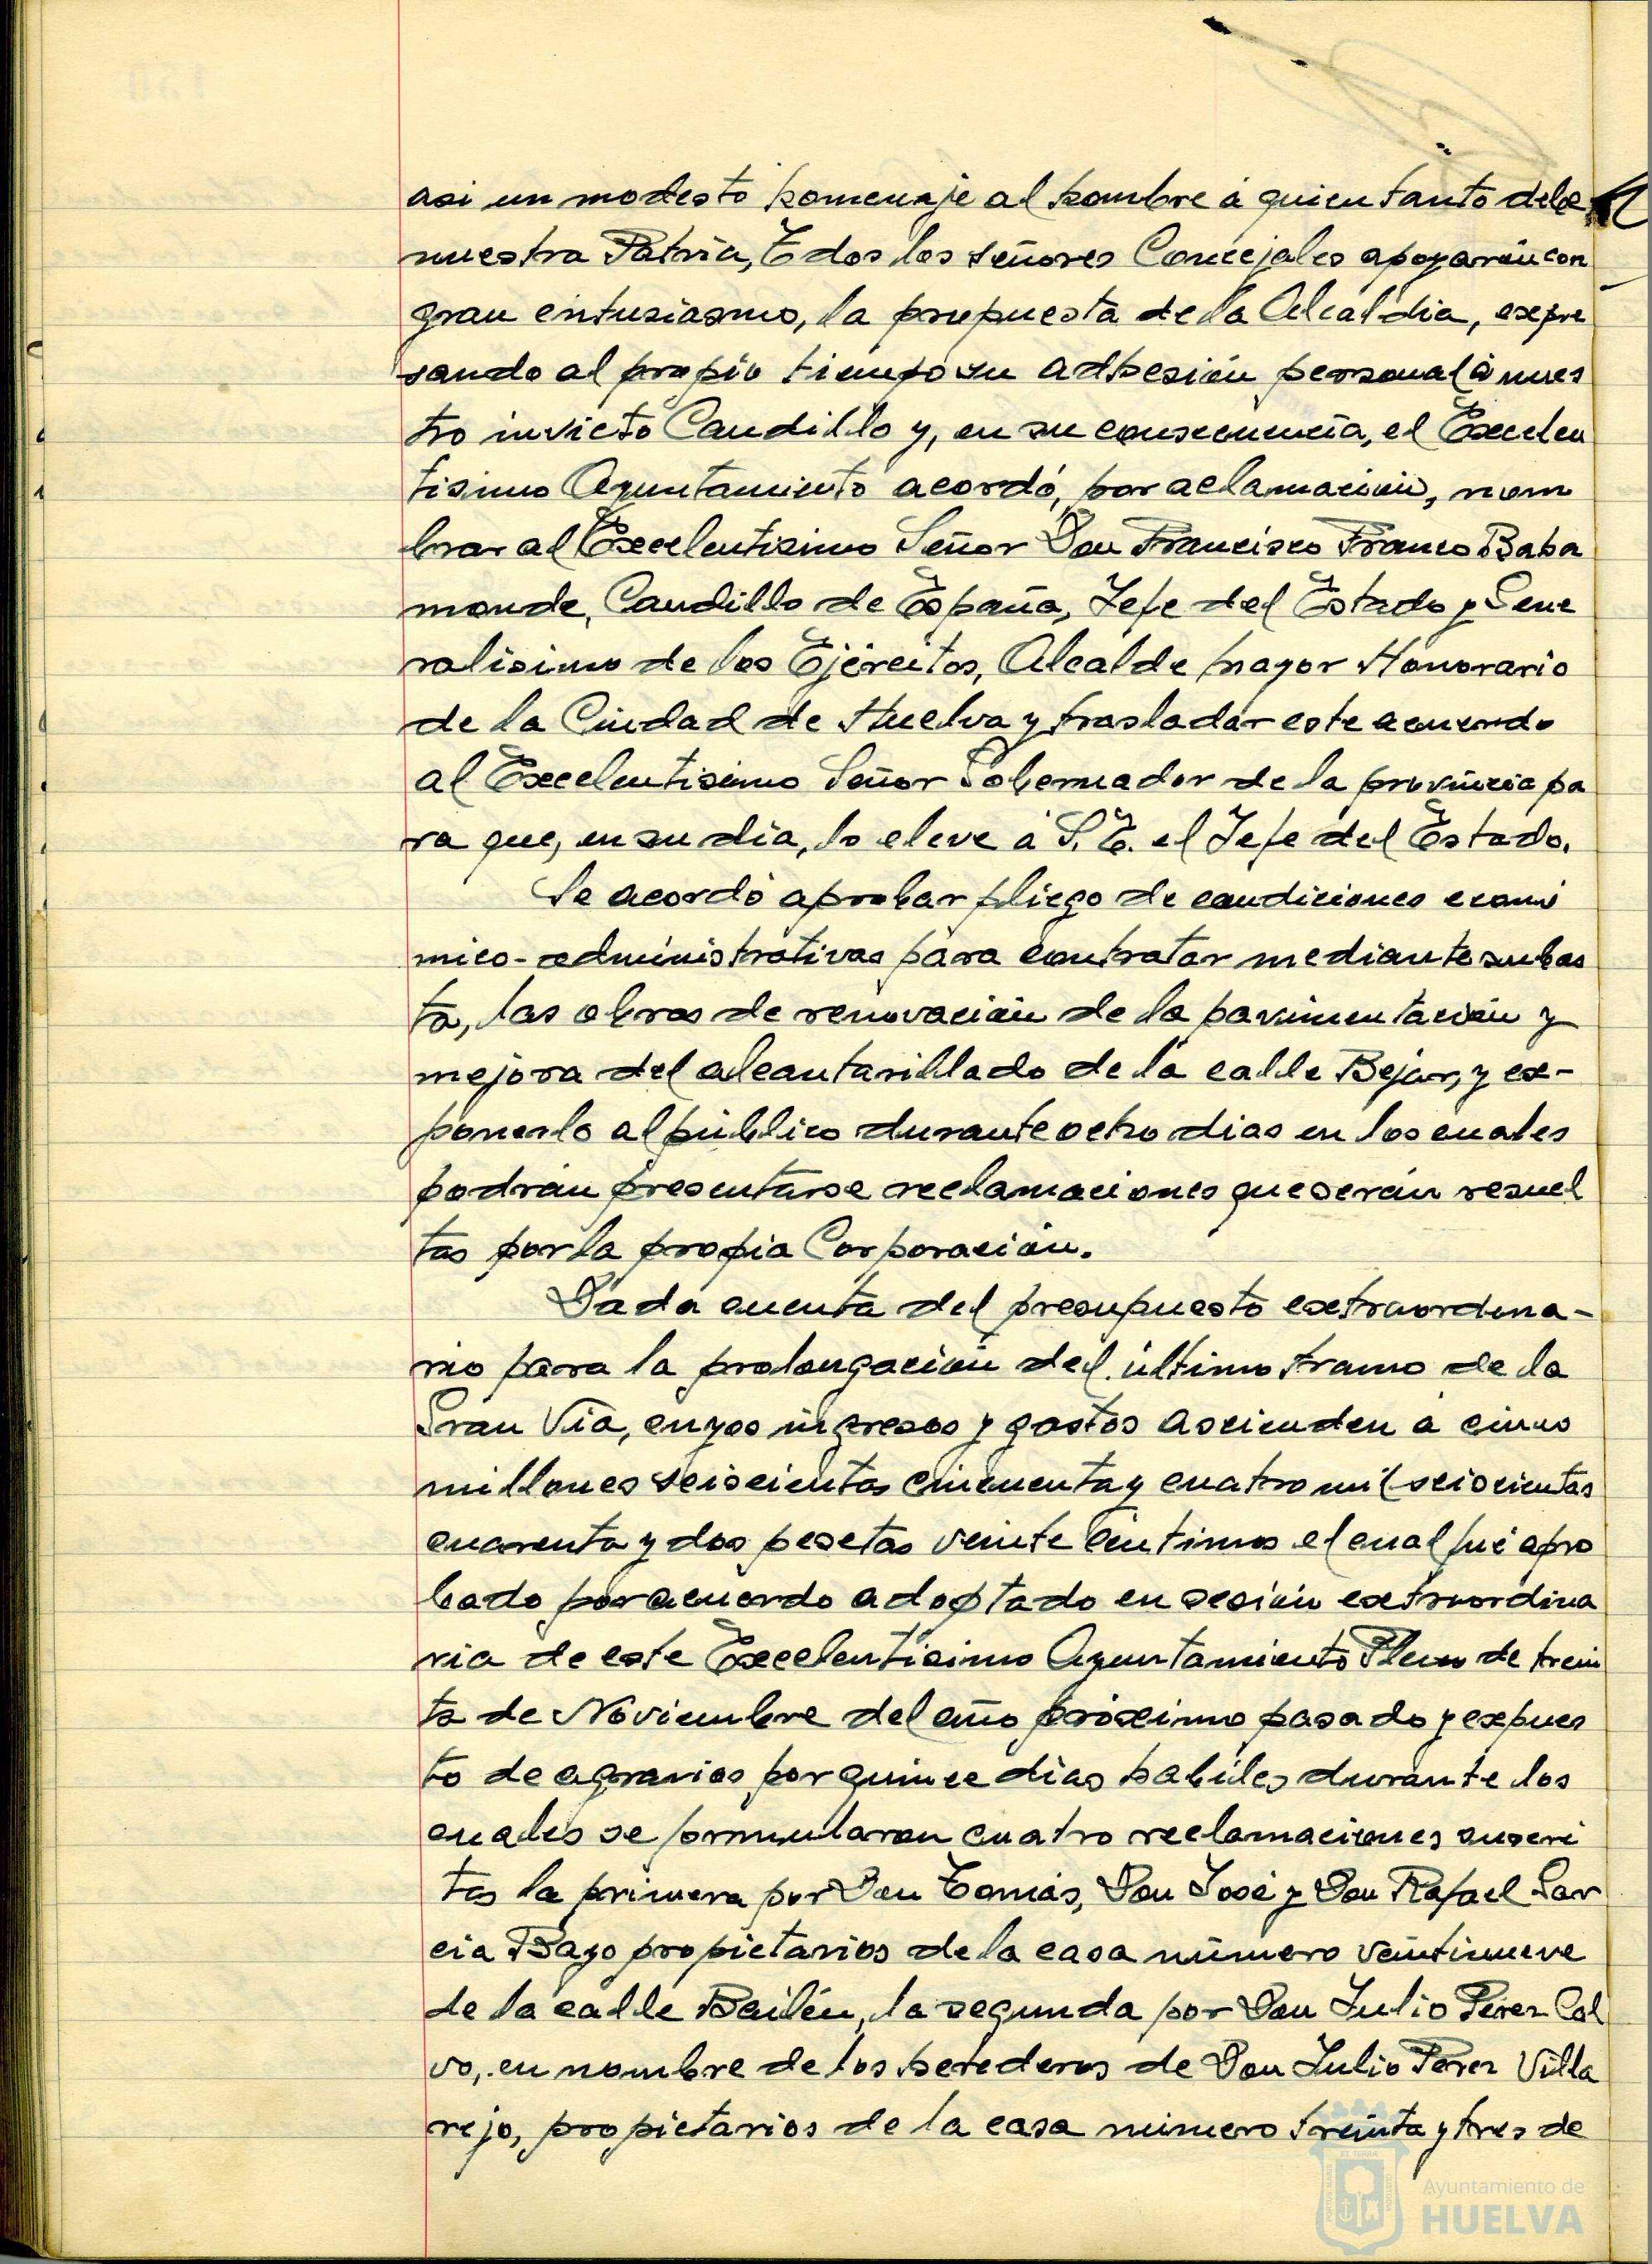 asi un modesto homenaje al hombre á quien tanto debe
nuestra Patria, Todos los señores Concejales apoyarón con
gran entusiasmo, la propuesta de la Alcaldia, expre
sando al propio tiempo su adhesión personal á nues
tro invicto Caudillo y, en su consecuencia, el Excelen
tisimo Ayuntamiento acordó, por aclamación, nom
brar al Excelentisimo Señor Don Francisco Franco Baha
monde, Caudillo de España, Jefe del Estado y Gene
ralisimo de los Ejércitos, Alcalde mayor Honorario
de la Ciudad de Huelva y trasladar este acuerdo
al Excelentisimo Señor Gobernador de la provincia pa
ra que, en su dia, lo eleve á S. E. el Jefe del Estado.
Se acordó aprobar pliego de condiciones econó
mico-administrativas para contratar mediante subas
ta, las obras de renovación de la pavimentación y
mejora del alcantarillado de la calle Bejar, y ex-
ponerlo al público durante ocho dias en los cuales
podrán presentarse reclamaciones que serán resuel
tas por la propia Corporación.
Dada cuenta del presupuesto extraordina-
rio para la prolongación del último tramo de la
Gran Via, cuyos ingresos y gastos ascienden a cinco
millones seiscientas cincuenta y cuatro mil seiscientas
cuarenta y dos pesetas veinte centimos el cual fué apro
bado por acuerdo adoptado en sesión extraordina
ria de este Excelentisimo Ayuntamiento Pleno de trein
ta de Noviembre del año próximo pasado y expues
to de agravios por quince dias habiles durante los
cuales se formularon cuatro reclamaciones suscri
tas la primera por Don Tomás, Don José y Don Rafael Gar
cia Bayo propietarios de la casa número veintinueve
de la calle Bailén, la segunda por Don Julio Pérez Cal
vo, en nombre de los herederos de Don Julio Perez Villa
rejo, propietarios de la casa número treinta y tres de
Ayuntamiento de
HUELVA